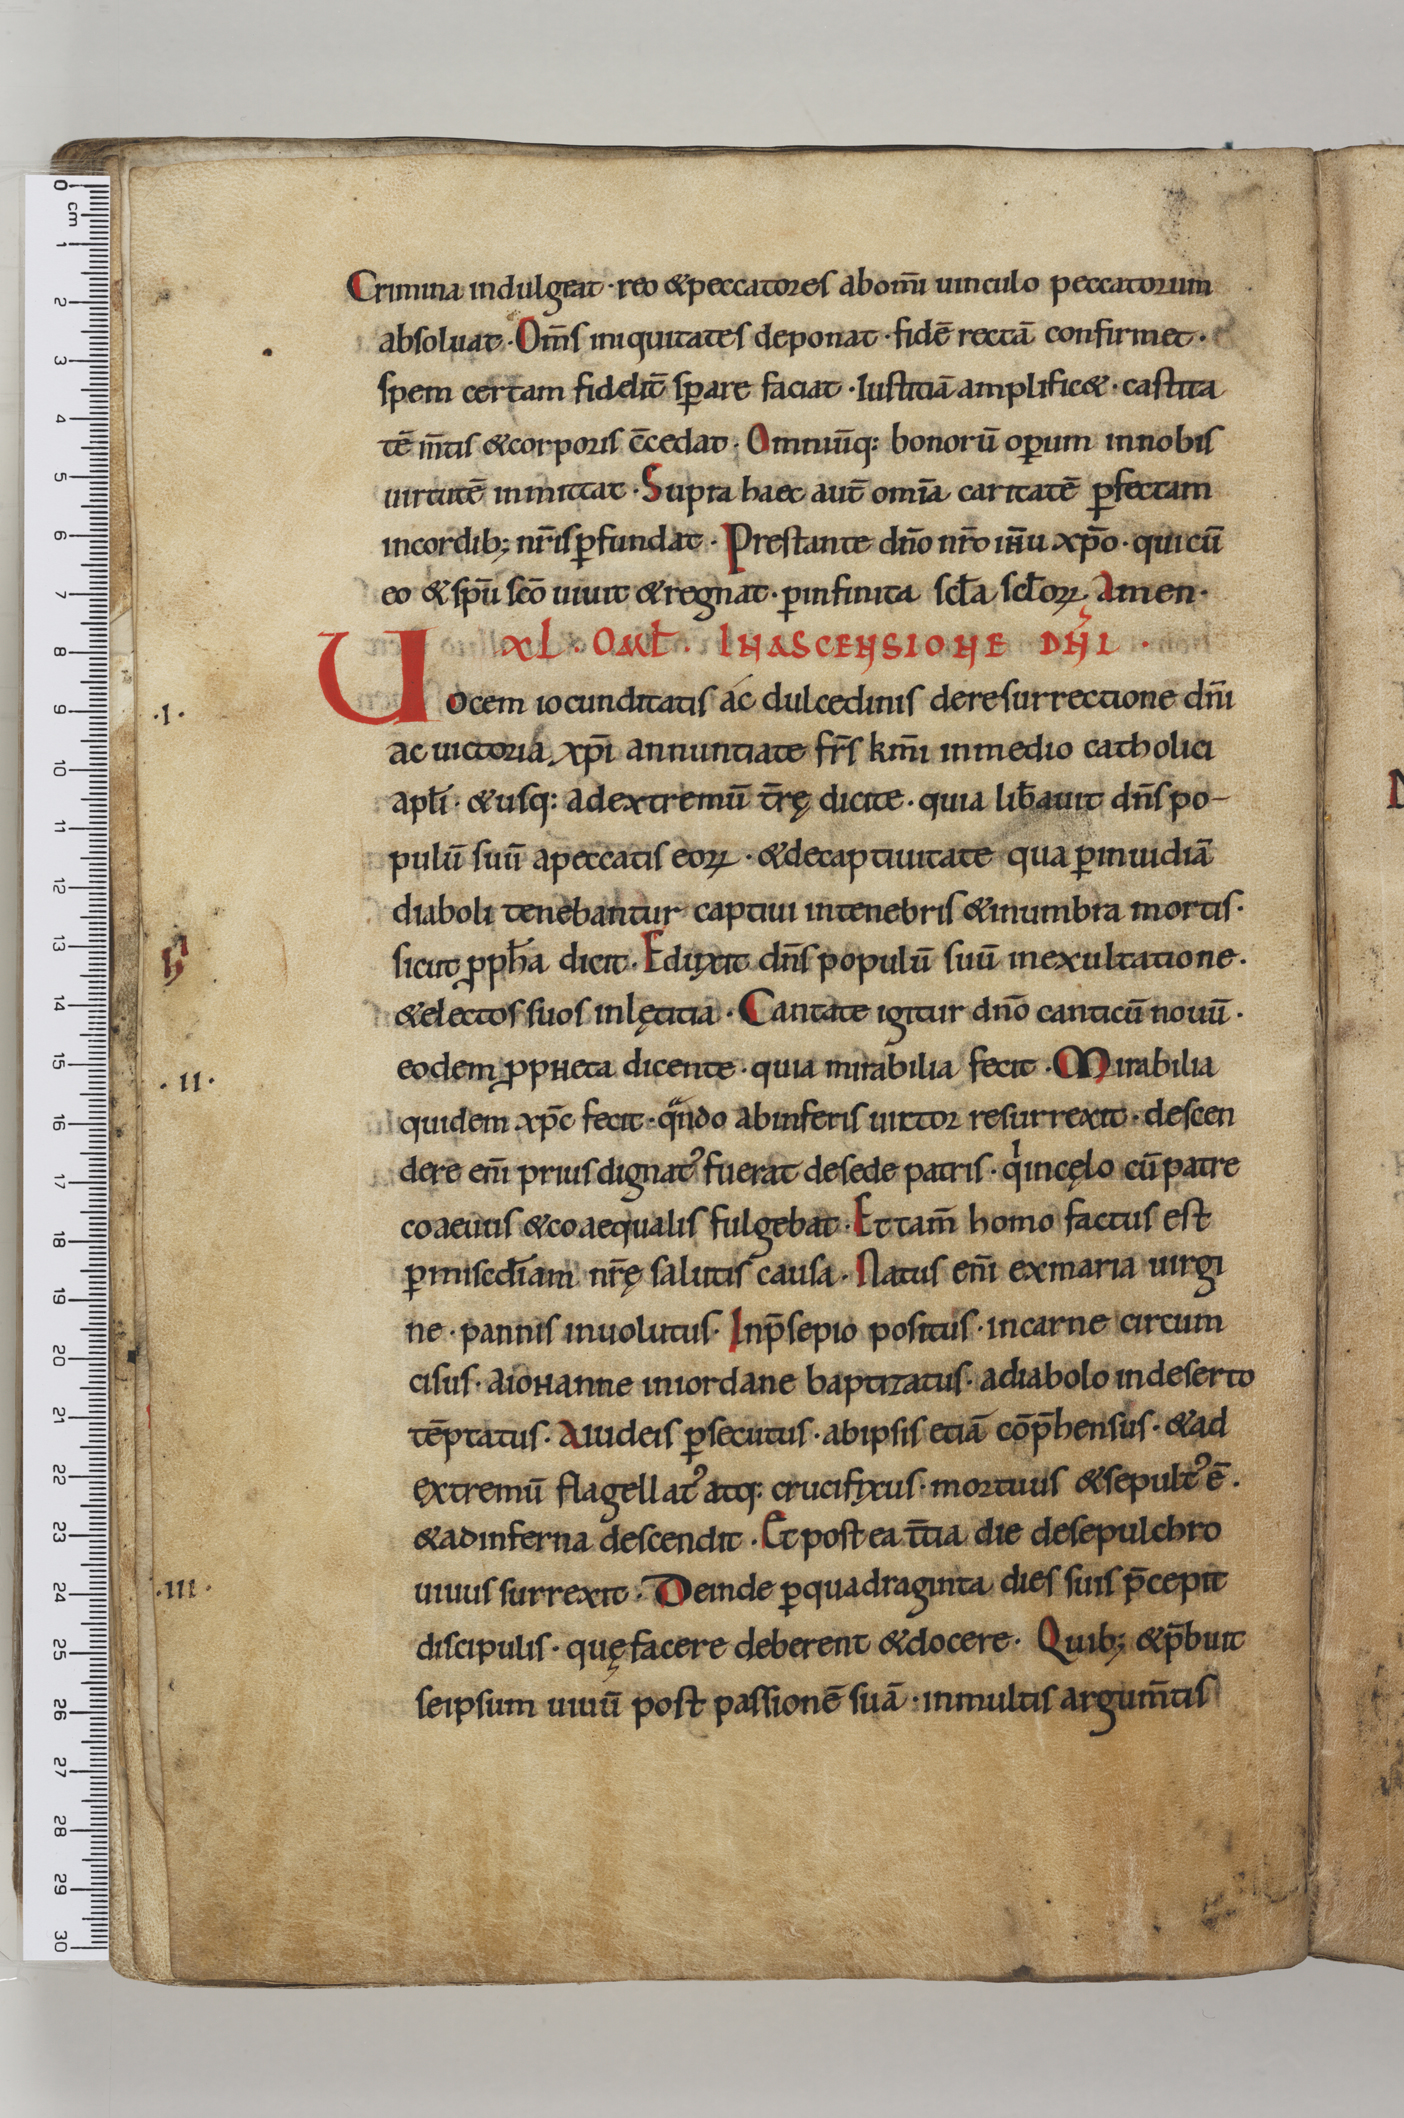 Crimina indulgeat · reo &peccatores abom̄i uinculo peccatorum
absoluat · Om̄s iniquitates deponat · fidē rectā confirmet ·
spem certam fidelit̄ sp̱are faciat · Iustitiā amplific& · castita
tē m̄tis &corporis c̄cedat · Omniūq: bonorū op̱um innobis
uirtutē inmittat · Supra haec aut̄ omīa caritatē p̱fectam
incordib; nr̄is p̱fundat · Prestante dn̄o nr̄o ıħu xp̄o · quicū
eo &sp̄u sc̄o uiuit &regnat · p̱infinita scl̄a scl̄oꝝ Amen ·
XL · OML̄ · INASCENSIONE DN̄I ·
Uocem iocunditatis ác dulcedinis deresurrectione dn̄i
ac uictoria xp̄i annuntiate fr̄s km̄i inmedio catholici
apl̄i · &usq: adextremū t̄rę dicite · quia lib̄auit dn̄s po-
pulū suū apeccatis eoꝝ · &decaptiuitate qua p̱inuidiā
diaboli tenebantur captiui intenebris &inumbra mortis ·
sicut ꝓph̄a dicit · Eduxit dn̄s populū suū inexultatione ·
&electos suos inlętitia · Cantate igitur dn̄o canticū nouū ·
eodem ꝓpheta dicente · quia mirabilia fecit · Mirabilia
quidem xp̄c fecit · qᵃndo abinferis uictor resurrexit · descen
dere en̄i prius dignatꝰ fuerat desede patris · qⁱ incęlo cū patre
coaeuus &coaequalis fulgebat · Et tam̄ homo factus est
p̱misc̄diam nr̄ę salutis causa · Natus en̄i exmaria uirgi
ne · pannis inuolutus · Inp̄sepio positus · incarne circum
cisus · aiohanne iniordane baptizatus · adiabolo indeserto
tēptatus · Aiudeis p̱secutus · abipsis etiā cōp̄hensus · &ad
extremū flagellatꝰ atq: crucifixus · mortuus &sepultꝰ ē ·
&adinferna descendit · Et postea t̄tia die desepulchro
uiuus surrexit · Deinde p̱quadraginta dies suis p̄cepit
discipulis · quę facere deberent &docere · Quib; &p̄buit
seipsum uiuū post passionē suā · inmultis argum̄tis
·I·
·II·
·III·